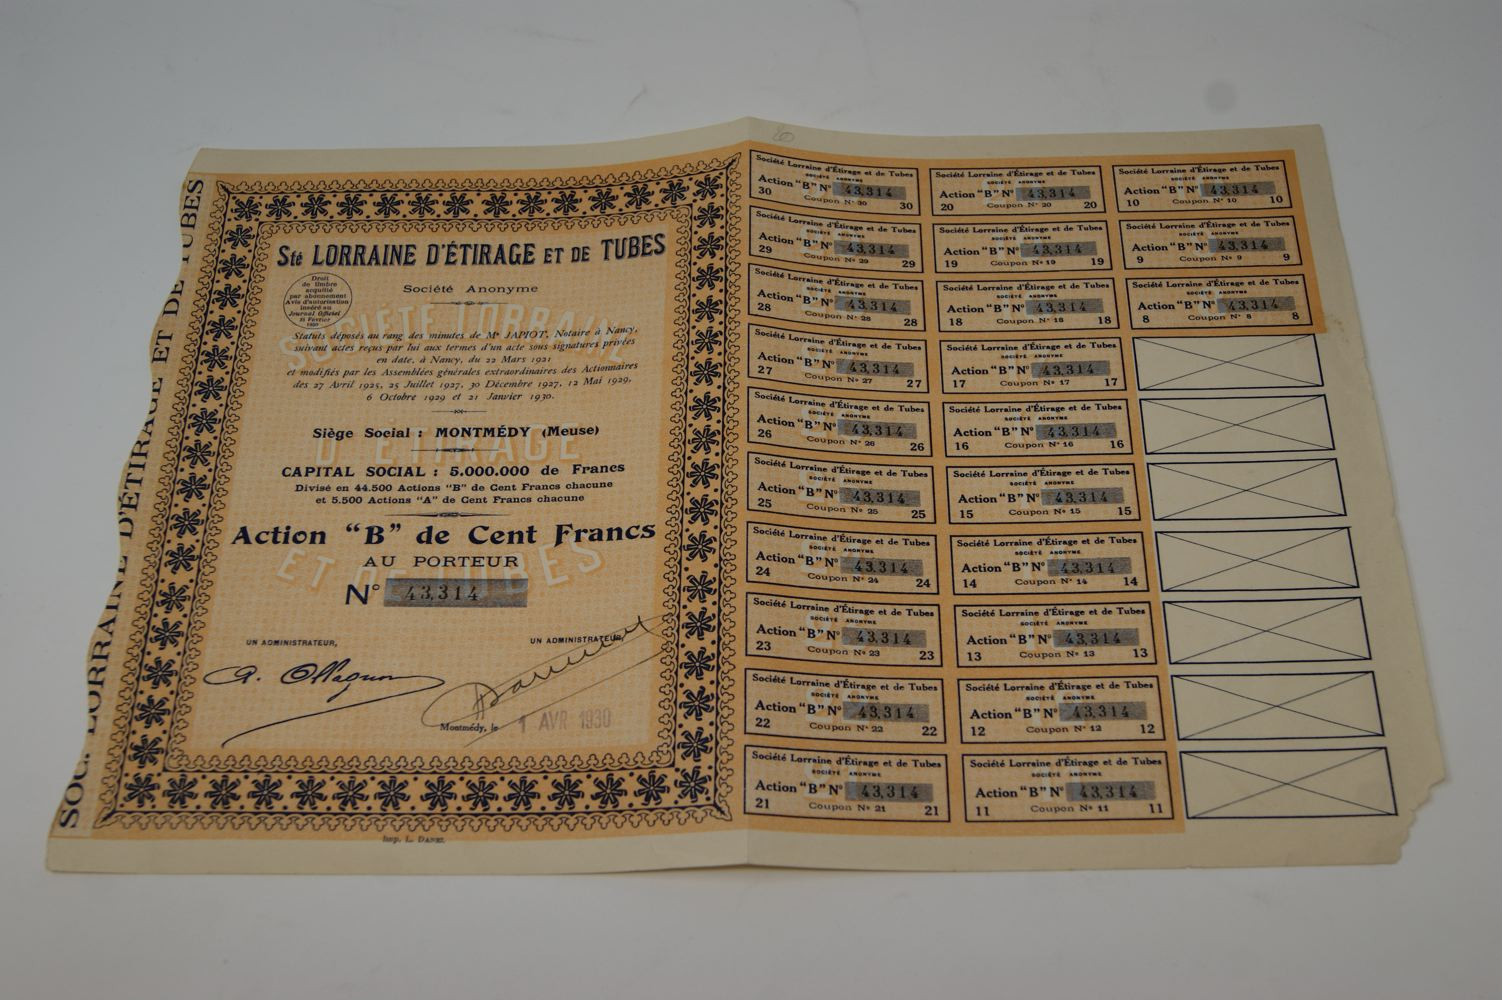 SOC. LORRAINE D'ÉTIRAGE ET DE TUBES
Sté LORRAINE D'ÉTIRAGE ET DE TUBES
Société Anonyme
Droit
de timbre
acquitté
par abonnement
Avis d'autorisation
inséré au
Journal Officiel
Février
1930
Statuts déposés au rang des minutes de Me JAPIOT, Notaire à Nancy,
suivant actes reçus par lui aux termes d'un acte sous signatures privées
en date, à Nancy, du 22 Mars 1921
et modifiés par les Assemblées générales extraordinaires des Actionnaires
des 27 Avril 1925, 25 Juillet 1927, 30 Décembre 1927, 12 Mai 1929,
6 Octobre 1929 et 21 Janvier 1930.
Siège Social : MONTMÉDY (Meuse)
CAPITAL SOCIAL : 5.000.000 de Francs
Divisé en 44.500 Actions "B" de Cent Francs chacune
et 5.500 Actions "A" de Cent Francs chacune
Action "B" de Cent Francs
AU PORTEUR
N° 43,314
SOCIÉTÉ LORRAINE
D'ÉTIRAGE
ET DE TUBES
UN ADMINISTRATEUR,
UN ADMINISTRATEUR,
Montmédy, le 1 AVR 1930
Imp. L. DANEL
Société Lorraine d'Étirage et de Tubes
SOCIÉTÉ ANONYME
Action "B" N° 43,314
30 Coupon N° 30 30
Société Lorraine d'Étirage et de Tubes
SOCIÉTÉ ANONYME
Action "B" N° 43,314
29 Coupon N° 29 29
Société Lorraine d'Étirage et de Tubes
SOCIÉTÉ ANONYME
Action "B" N° 43,314
28 Coupon N° 28 28
Société Lorraine d'Étirage et de Tubes
SOCIÉTÉ ANONYME
Action "B" N° 43,314
27 Coupon N° 27 27
Société Lorraine d'Étirage et de Tubes
SOCIÉTÉ ANONYME
Action "B" N° 43,314
26 Coupon N° 26 26
Société Lorraine d'Étirage et de Tubes
SOCIÉTÉ ANONYME
Action "B" N° 43,314
25 Coupon N° 25 25
Société Lorraine d'Étirage et de Tubes
SOCIÉTÉ ANONYME
Action "B" N° 43,314
24 Coupon N° 24 24
Société Lorraine d'Étirage et de Tubes
SOCIÉTÉ ANONYME
Action "B" N° 43,314
23 Coupon N° 23 23
Société Lorraine d'Étirage et de Tubes
SOCIÉTÉ ANONYME
Action "B" N° 43,314
22 Coupon N° 22 22
Société Lorraine d'Étirage et de Tubes
SOCIÉTÉ ANONYME
Action "B" N° 43,314
21 Coupon N° 21 21
Société Lorraine d'Étirage et de Tubes
SOCIÉTÉ ANONYME
Action "B" N° 43,314
20 Coupon N° 20 20
Société Lorraine d'Étirage et de Tubes
SOCIÉTÉ ANONYME
Action "B" N° 43,314
19 Coupon N° 19 19
Société Lorraine d'Étirage et de Tubes
SOCIÉTÉ ANONYME
Action "B" N° 43,314
18 Coupon N° 18 18
Société Lorraine d'Étirage et de Tubes
SOCIÉTÉ ANONYME
Action "B" N° 43,314
17 Coupon N° 17 17
Société Lorraine d'Étirage et de Tubes
SOCIÉTÉ ANONYME
Action "B" N° 43,314
16 Coupon N° 16 16
Société Lorraine d'Étirage et de Tubes
SOCIÉTÉ ANONYME
Action "B" N° 43,314
15 Coupon N° 15 15
Société Lorraine d'Étirage et de Tubes
SOCIÉTÉ ANONYME
Action "B" N° 43,314
14 Coupon N° 14 14
Société Lorraine d'Étirage et de Tubes
SOCIÉTÉ ANONYME
Action "B" N° 43,314
13 Coupon N° 13 13
Société Lorraine d'Étirage et de Tubes
SOCIÉTÉ ANONYME
Action "B" N° 43,314
12 Coupon N° 12 12
Société Lorraine d'Étirage et de Tubes
SOCIÉTÉ ANONYME
Action "B" N° 43,314
11 Coupon N° 11 11
Société Lorraine d'Étirage et de Tubes
SOCIÉTÉ ANONYME
Action "B" N° 43,314
10 Coupon N° 10 10
Société Lorraine d'Étirage et de Tubes
SOCIÉTÉ ANONYME
Action "B" N° 43,314
9 Coupon N° 9 9
Société Lorraine d'Étirage et de Tubes
SOCIÉTÉ ANONYME
Action "B" N° 43,314
8 Coupon N° 8 8